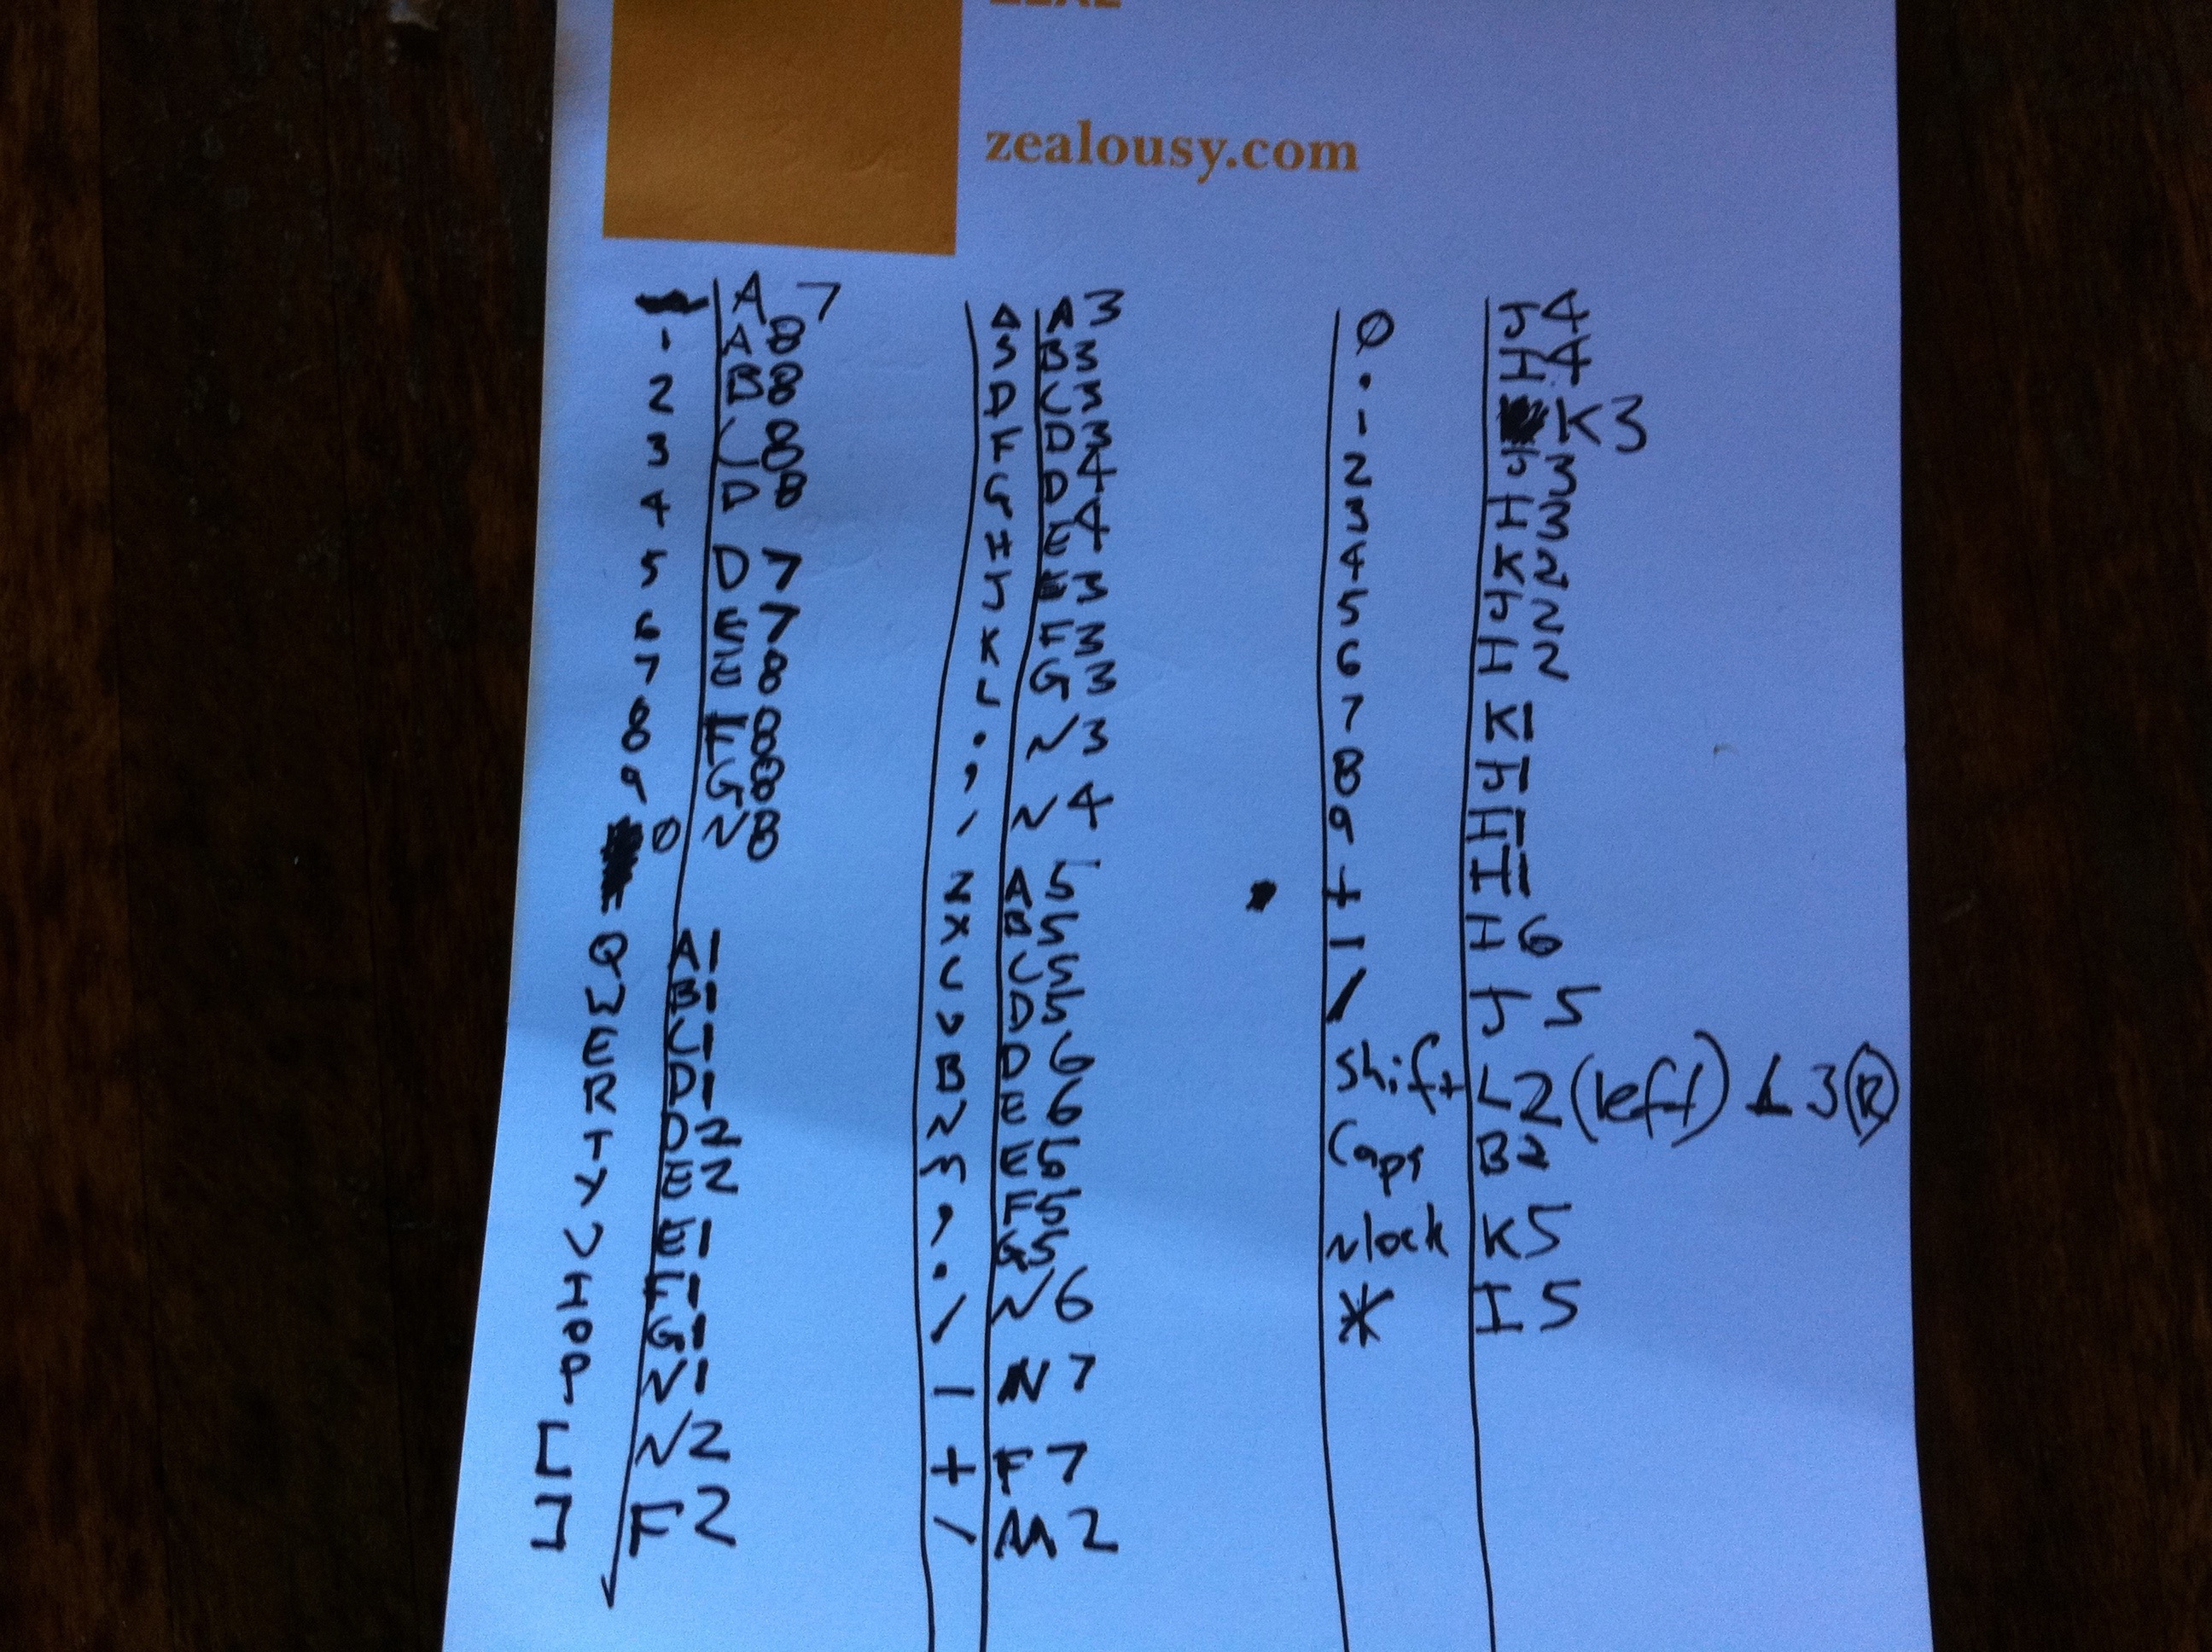 zealousy.com
A 7
1 A8
2 B8
3 C8
4 D8
5 D7
6 E7
7 E8
8 F8
9 G8
0 N8
Q A1
W B1
E C1
R D1
T D2
Y E2
U E1
I F1
O G1
P N1
[ N2
] F2
A A3
S B3
D C3
F D3
G D4
H E4
J E3
K F3
L G3
; N3
' N4
Z A5
X B5
C C5
V D5
B D6
N E6
M E5
, F5
. G5
/ N6
- N7
+ F7
\ M2
0 J4
. I4
1 K3
2 J3
3 I3
4 K2
5 J2
6 I2
7 K1
8 J1
9 I1
+ H1
- I6
/ J5
Shift L2 (left) L3 (R)
Caps B2
Nlock K5
* I5